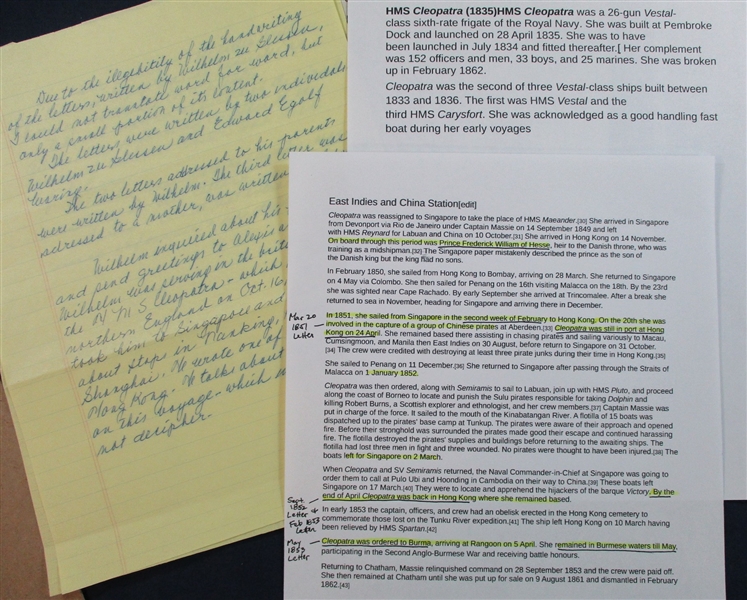 Due to the illegibitity of the handwriting
of the letters, written by Wilhelm zu Glessen,
I could not translate word for word, but
only a small portion of its content.
The letters were written by two individuals
Wilhelm zu Glessen and Edward Egolf
The two letters addressed to his parents
were written by Wilhelm. The third letter was
addressed to a mother, was written
Wilhelm inquired about his
and send greetings to Alexis a
Wilhelm was serving in the brit
the N M S Cleopatra - which
northern England on Oct. 16,
took him to Singapore and
about stop in Nanking,
Shanghai. He wrote one of
Hong Kong. He talks about
on this voyage - which
not decipher.
HMS Cleopatra (1835)HMS Cleopatra was a 26-gun Vestal-
class sixth-rate frigate of the Royal Navy. She was built at Pembroke
Dock and launched on 28 April 1835. She was to have
been launched in July 1834 and fitted thereafter.[ Her complement
was 152 officers and men, 33 boys, and 25 marines. She was broken
up in February 1862.
Cleopatra was the second of three Vestal-class ships built between
1833 and 1836. The first was HMS Vestal and the
third HMS Carysfort. She was acknowledged as a good handling fast
boat during her early voyages
East Indies and China Station[edit]
Cleopatra was reassigned to Singapore to take the place of HMS Maeander.[30] She arrived in Singapore
from Devonport via Rio de Janeiro under Captain Massie on 14 September 1849 and left
with HMS Reynard for Labuan and China on 10 October.[31] She arrived in Hong Kong on 14 November.
On board through this period was Prince Frederick William of Hesse, heir to the Danish throne, who was
training as a midshipman.[32] The Singapore paper mistakenly described the prince as the son of
the Danish king but the king had no sons.
In February 1850, she sailed from Hong Kong to Bombay, arriving on 28 March. She returned to Singapore
on 4 May via Colombo. She then sailed for Penang on the 16th visiting Malacca on the 18th. By the 23rd
she was sighted near Cape Rachado. By early September she arrived at Trincomalee. After a break she
returned to sea in November, heading for Singapore and arriving there in December.
Mar 20
1851
Letter
In 1851, she sailed from Singapore in the second week of February to Hong Kong. On the 20th she was
involved in the capture of a group of Chinese pirates at Aberdeen.[33] Cleopatra was still in port at Hong
Kong on 24 April. She remained based there assisting in chasing pirates and sailing variously to Macau,
Cumsingmoon, and Manila then East Indies on 30 August, before return to Singapore on 31 October.
[34] The crew were credited with destroying at least three pirate junks during their time in Hong Kong.[35]
She sailed to Penang on 11 December.[36] She returned to Singapore after passing through the Straits of
Malacca on 1 January 1852.
Cleopatra was then ordered, along with Semiramis to sail to Labuan, join up with HMS Pluto, and proceed
along the coast of Borneo to locate and punish the Sulu pirates responsible for taking Dolphin and
killing Robert Burns, a Scottish explorer and ethnologist, and her crew members.[37] Captain Massie was
put in charge of the force. It sailed to the mouth of the Kinabatangan River. A flotilla of 15 boats was
dispatched up to the pirates' base camp at Tunkup. The pirates were aware of their approach and opened
fire. Before their stronghold was surrounded the pirates made good their escape and continued harassing
fire. The flotilla destroyed the pirates' supplies and buildings before returning to the awaiting ships. The
flotilla had lost three men in fight and three wounded. No pirates were thought to have been injured.[38] The
boats left for Singapore on 2 March.
When Cleopatra and SV Semiramis returned, the Naval Commander-in-Chief at Singapore was going to
order them to call at Pulo Ubi and Hoonding in Cambodia on their way to China.[39] These boats left
Singapore on 17 March.[40] They were to locate and apprehend the hijackers of the barque Victory. By the
end of April Cleopatra was back in Hong Kong where she remained based.
Sept.
1852
Letter +
Feb 1853
Letter
In early 1853 the captain, officers, and crew had an obelisk erected in the Hong Kong cemetery to
commemorate those lost on the Tunku River expedition.[41] The ship left Hong Kong on 10 March having
been relieved by HMS Spartan.[42]
May
1853
Letter
Cleopatra was ordered to Burma, arriving at Rangoon on 5 April. She remained in Burmese waters till May,
participating in the Second Anglo-Burmese War and receiving battle honours.
Returning to Chatham, Massie relinquished command on 28 September 1853 and the crew were paid off.
She then remained at Chatham until she was put up for sale on 9 August 1861 and dismantled in February
1862.[43]